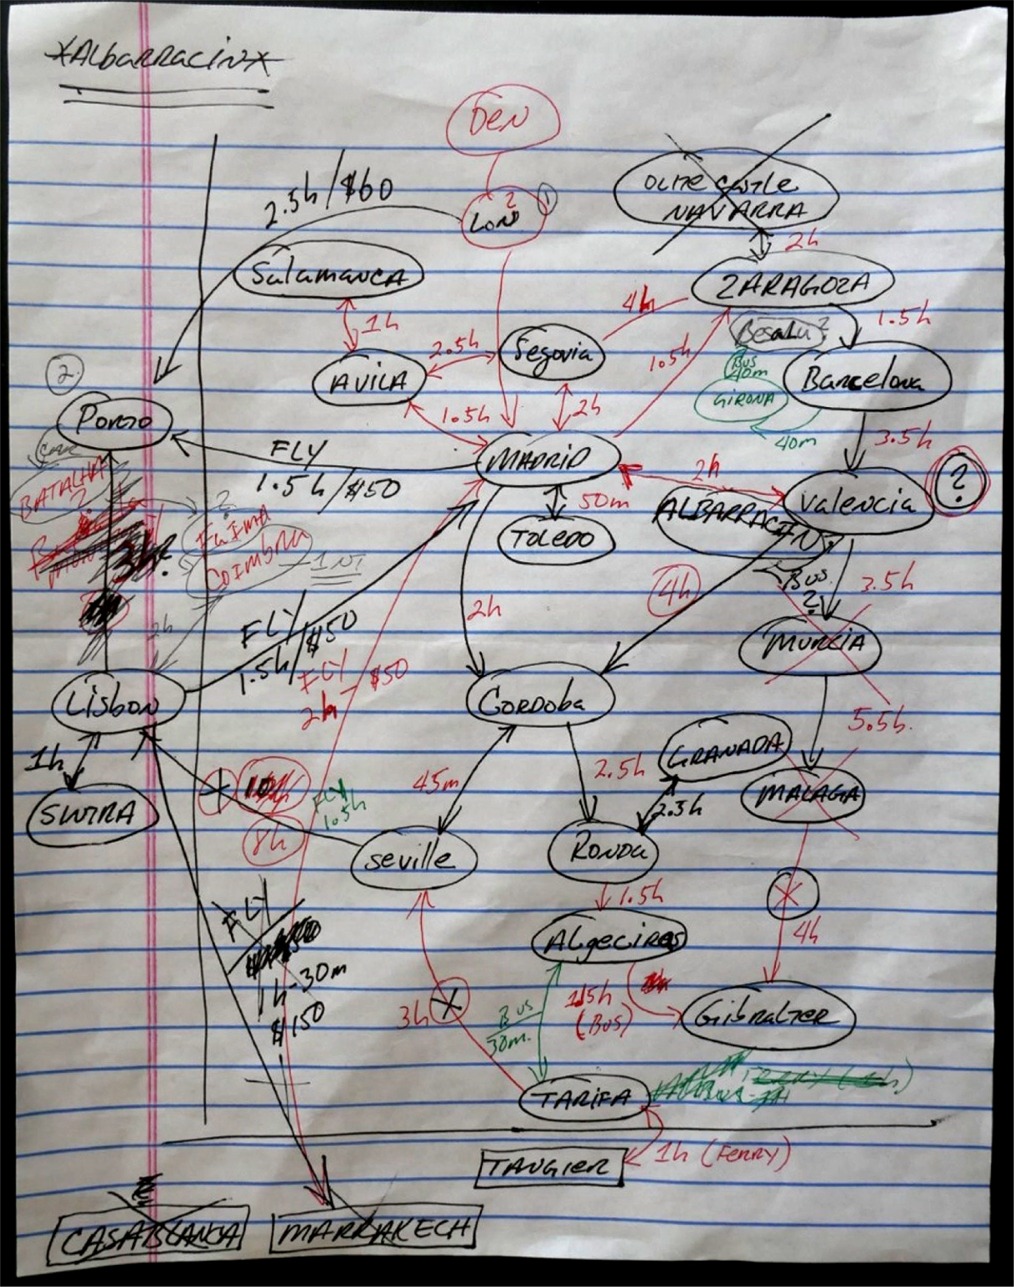 *Albarracin*
Den
2.5h/$60
Lon ?
1
Olite Castle
NAVARRA
2h
Salamanca
ZARAGOZA
4h
1.5h
1h
Besalu?
Segovia
2.5h
1.5h
Bus
40m
Barcelona
AVILA
GIRONA
2.
1.5h
2h
40m
3.5h
Porto
CAR
FLY
MADRID
2h
?
1.5h/$50
BATALHA
?
50m
Valencia
ALBARRACIN
TOLEDO
?
Fatima
Coimbra
1 NT
3h?
Bus
?
3.5h
4h
2h
2h
FLY
1.5h/$50
MURCIA
FLY
2h
$50
Lisbon
Cordoba
5.5h.
1h
GRANADA
45m
2.5h
10h
FLY
1.5h
MALAGA
2.5h
SINTRA
8h
Seville
Ronda
1.5h
FLY
4h
Algeciras
1h-30m
$150
3h
Bus
30m.
1.5h
(BUS)
Gibralter
TARIFA
TANGIER
1h (FERRY)
CASABLANCA
MARRAKECH